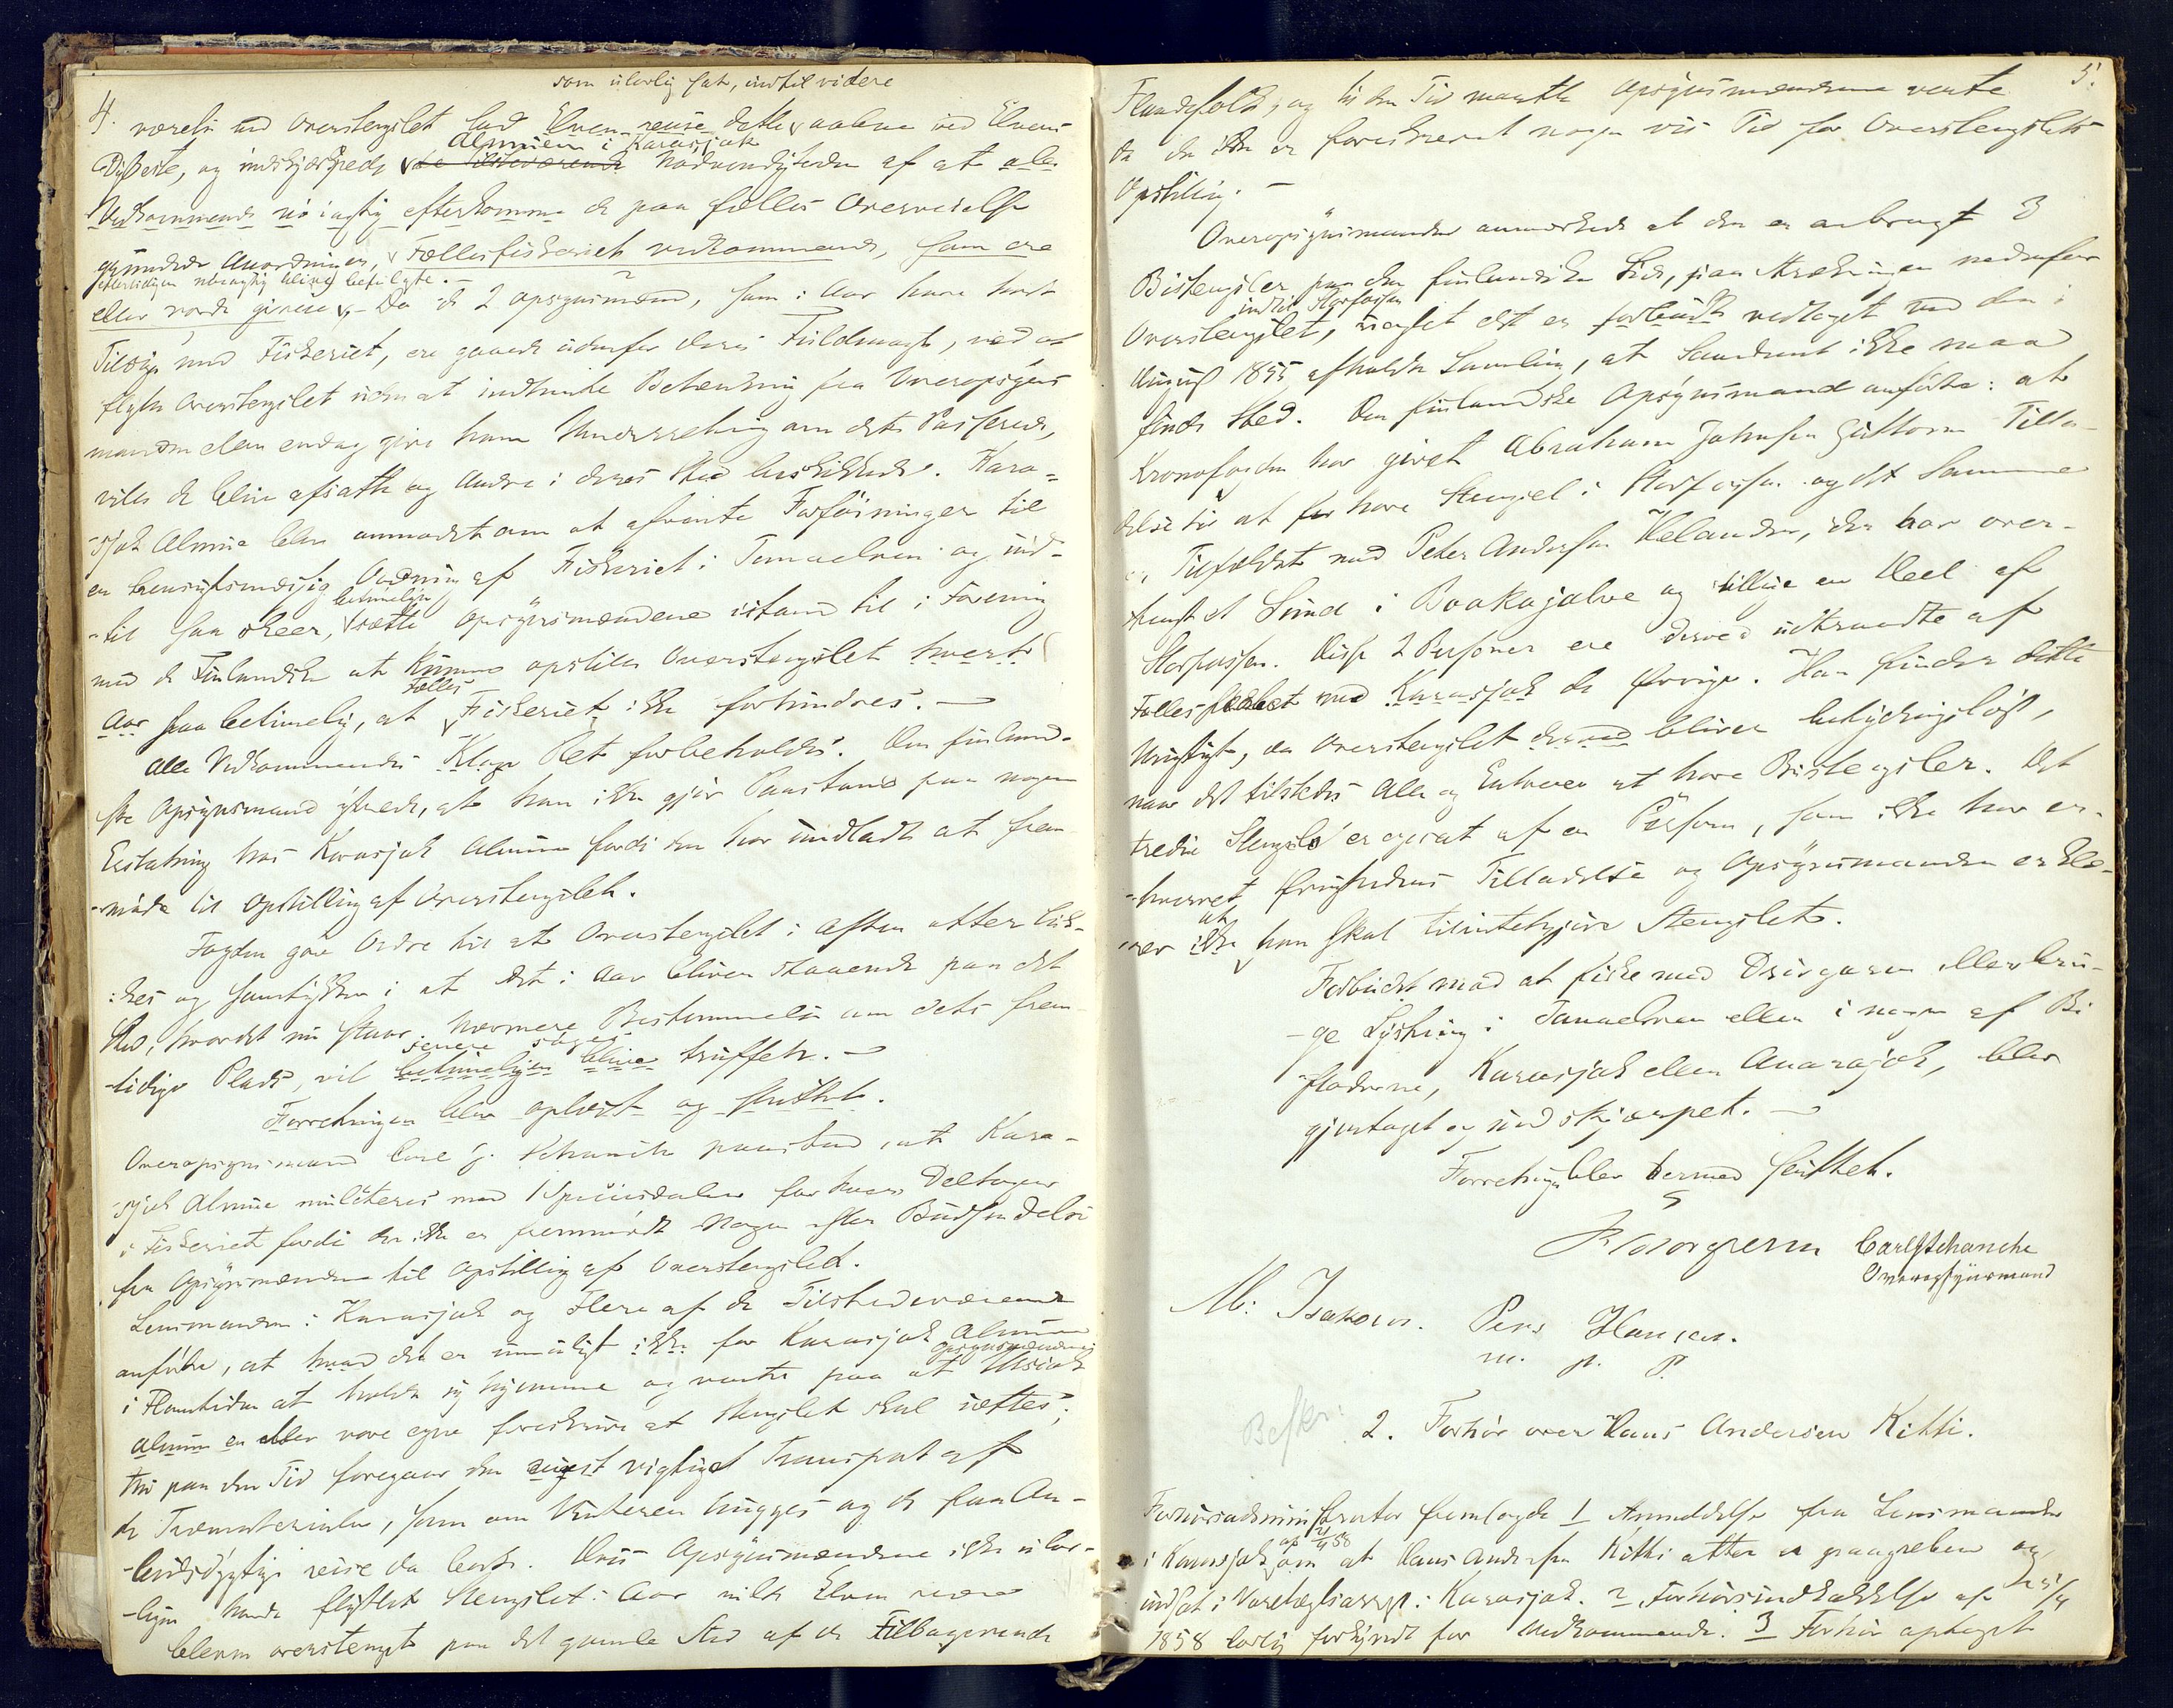 4.
som ulovlig sat, indtil videre
værelse med Overstengslet lod Elven rense dette aabne ved Elvens
Almuen i Karasjok
Dybeste, og indskjærpede de tilstedeværende Nødvendigheden af at alle
Vedkommende nöiagtig efterkomme de paa fælles Overveielse
grundede Anordninger, Fællesfiskeriet vedkommende, som ere
efterdags nöiagtig blive befulgte.
eller vorde givne. - Da de 2 Opsynsmænd, som i Aar have havt
Tilsyn med Fiskeriet, ere gaaede udenfor deres Fuldmagt, ved at
flytte Overstengslet uden at indhente Betænkning fra Overopsyns
manden eller endog give ham Underretning om det Passerede,
ville de blive afsatte og Andre i deres Sted beskikkede. Kara-
sjok Almue blev anmodet om at afvente Forföininger til
en hensigtsmæssig Ordning af Fiskeriet i Tanaelven og ind-
betimelig
til saa skeer, sætte Opsynsmændene istand til i Forening
med de Finlandske at kunne opstille Overstengslet hvert
Fælles
Aar saa betimelig, at Fiskeriet ikke forhindres. -
Alle Vedkommendes Klage Ret forbeholdes. Den finland-
ske Opsynsmand ytrede, at han ikke gjör Paastand paa nogen
Erstatning hos Karasjok Almue fordi den har undladt at frem-
möde til Opstilling af Overstengslet.
Fogden gav Ordre til at Overstengslet i Aften atter luk-
kes og samtykker i at det i Aar bliver staaende paa det
Sted, hvor det nu staar. Nærmere Bestemmelse om dets frem-
senere söges
tidige Plads, vil betimeligen blive truffet. -
Forretningen blev oplæst og sluttet.
Overopsynsmand Carl G. Schanche paastod, at Kara-
sjok Almue mulcteres med 1 Speciesdaler for hver Deltager
i Fiskeriet fordi der ikke er fremmödt Nogen efter Budsendelse
fra Opsynsmændene til Opstilling af Overstengslet.
Lensmanden i Karasjok og Flere af de Tilstedeværende
anförte, at hvad det er umuligt ikke for Karasjok Almue
Opsynsmændenes
i Flomtiden at holde sig hjemme og vente paa at Utsjok
Almue en eller vore egne foreskrive at Stengslet skal sættes;
thi paa den Tid foregaar den meget vigtige Transport af
de Træmaterialier, som om Vinteren hugges og de fra An-
beidsdygtige reise da bort. Hvis Opsynsmændene ikke ulov-
ligen havde flyttet Stengslet i Aar vilde Elven være
bleven overstengt paa det gamle Sted af de Tilbageværende
5.
Flaadefolk, og til den Tid maatte Opsynsmændene vente
da der ikke er foreskrevet nogen vis Tid for Overstengslets
Opstilling. -
Overopsynsmanden anmærkede at der er anbragt 3
Bistengsler paa den finlandske Side, paa Strækningen nedenfor
indtil Storfossen
Overstengslet, uagtet det er forbudt vedtaget ved den i
August 1855 afholdte Samling, at Saadant ikke maa
finde Sted. Den finlandske Opsynsmand anförte: at
Kronofogden har givet Abraham Johnsen Guttorm Tilla-
delse til at for have Stengsel i Storfossen og det Samme
er Tilfældet med Peter Andersen Helander, der har over-
stengt et Sund i Boakojalve og tillige en Deel af
Storfossen. Disse 2 Personer ere derved udtraadte af
Fællesskabet med Karasjok de Övrige. Han finder dette
Urigtigt, da Overstengslet derved bliver betydningslöst,
naar det tilstedes Alle og Enhver at have Bistengsler. Det
tredie Stengsel er opsat af en Person, som ikke har er-
hvervet Övrighedens Tilladelse og Opsynsmanden erklæ-
at
rer ikke han skal tilintetgjöre Stengslet.
Forbudet mod at fiske med Drivgarn eller bru-
ge Lystring i Tanaelven eller i nogen af Bi
floderne, Karasjok eller Anarajok, blev
gjentaget og indskjærpet. -
Forretningen blev dermed sluttet.
Carl G Schanche
Overopsynsmand
M: Isaksen. Pers Hansen.
m. p. P.
Beskr:
2. Forhör over Hans Andersen Kitti.
Forhörsadministrator fremlagde 1 Anmeldelse fra Lensmanden
af 21/4 58
i Karasjok om at Hans Andersen Kitti atter er paagreben og
indsat i Varetægtsarrest i Karasjok. 2, Forhörsindkaldelse af 25/4
1858 lovlig forkyndt for Vedkommende. 3 Forhör optaget